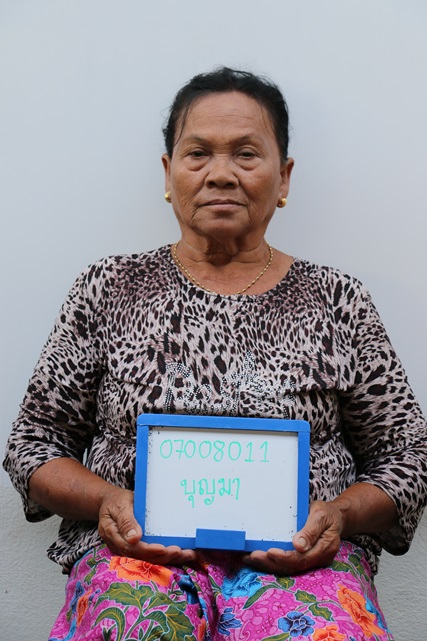 07008011
บุญมา